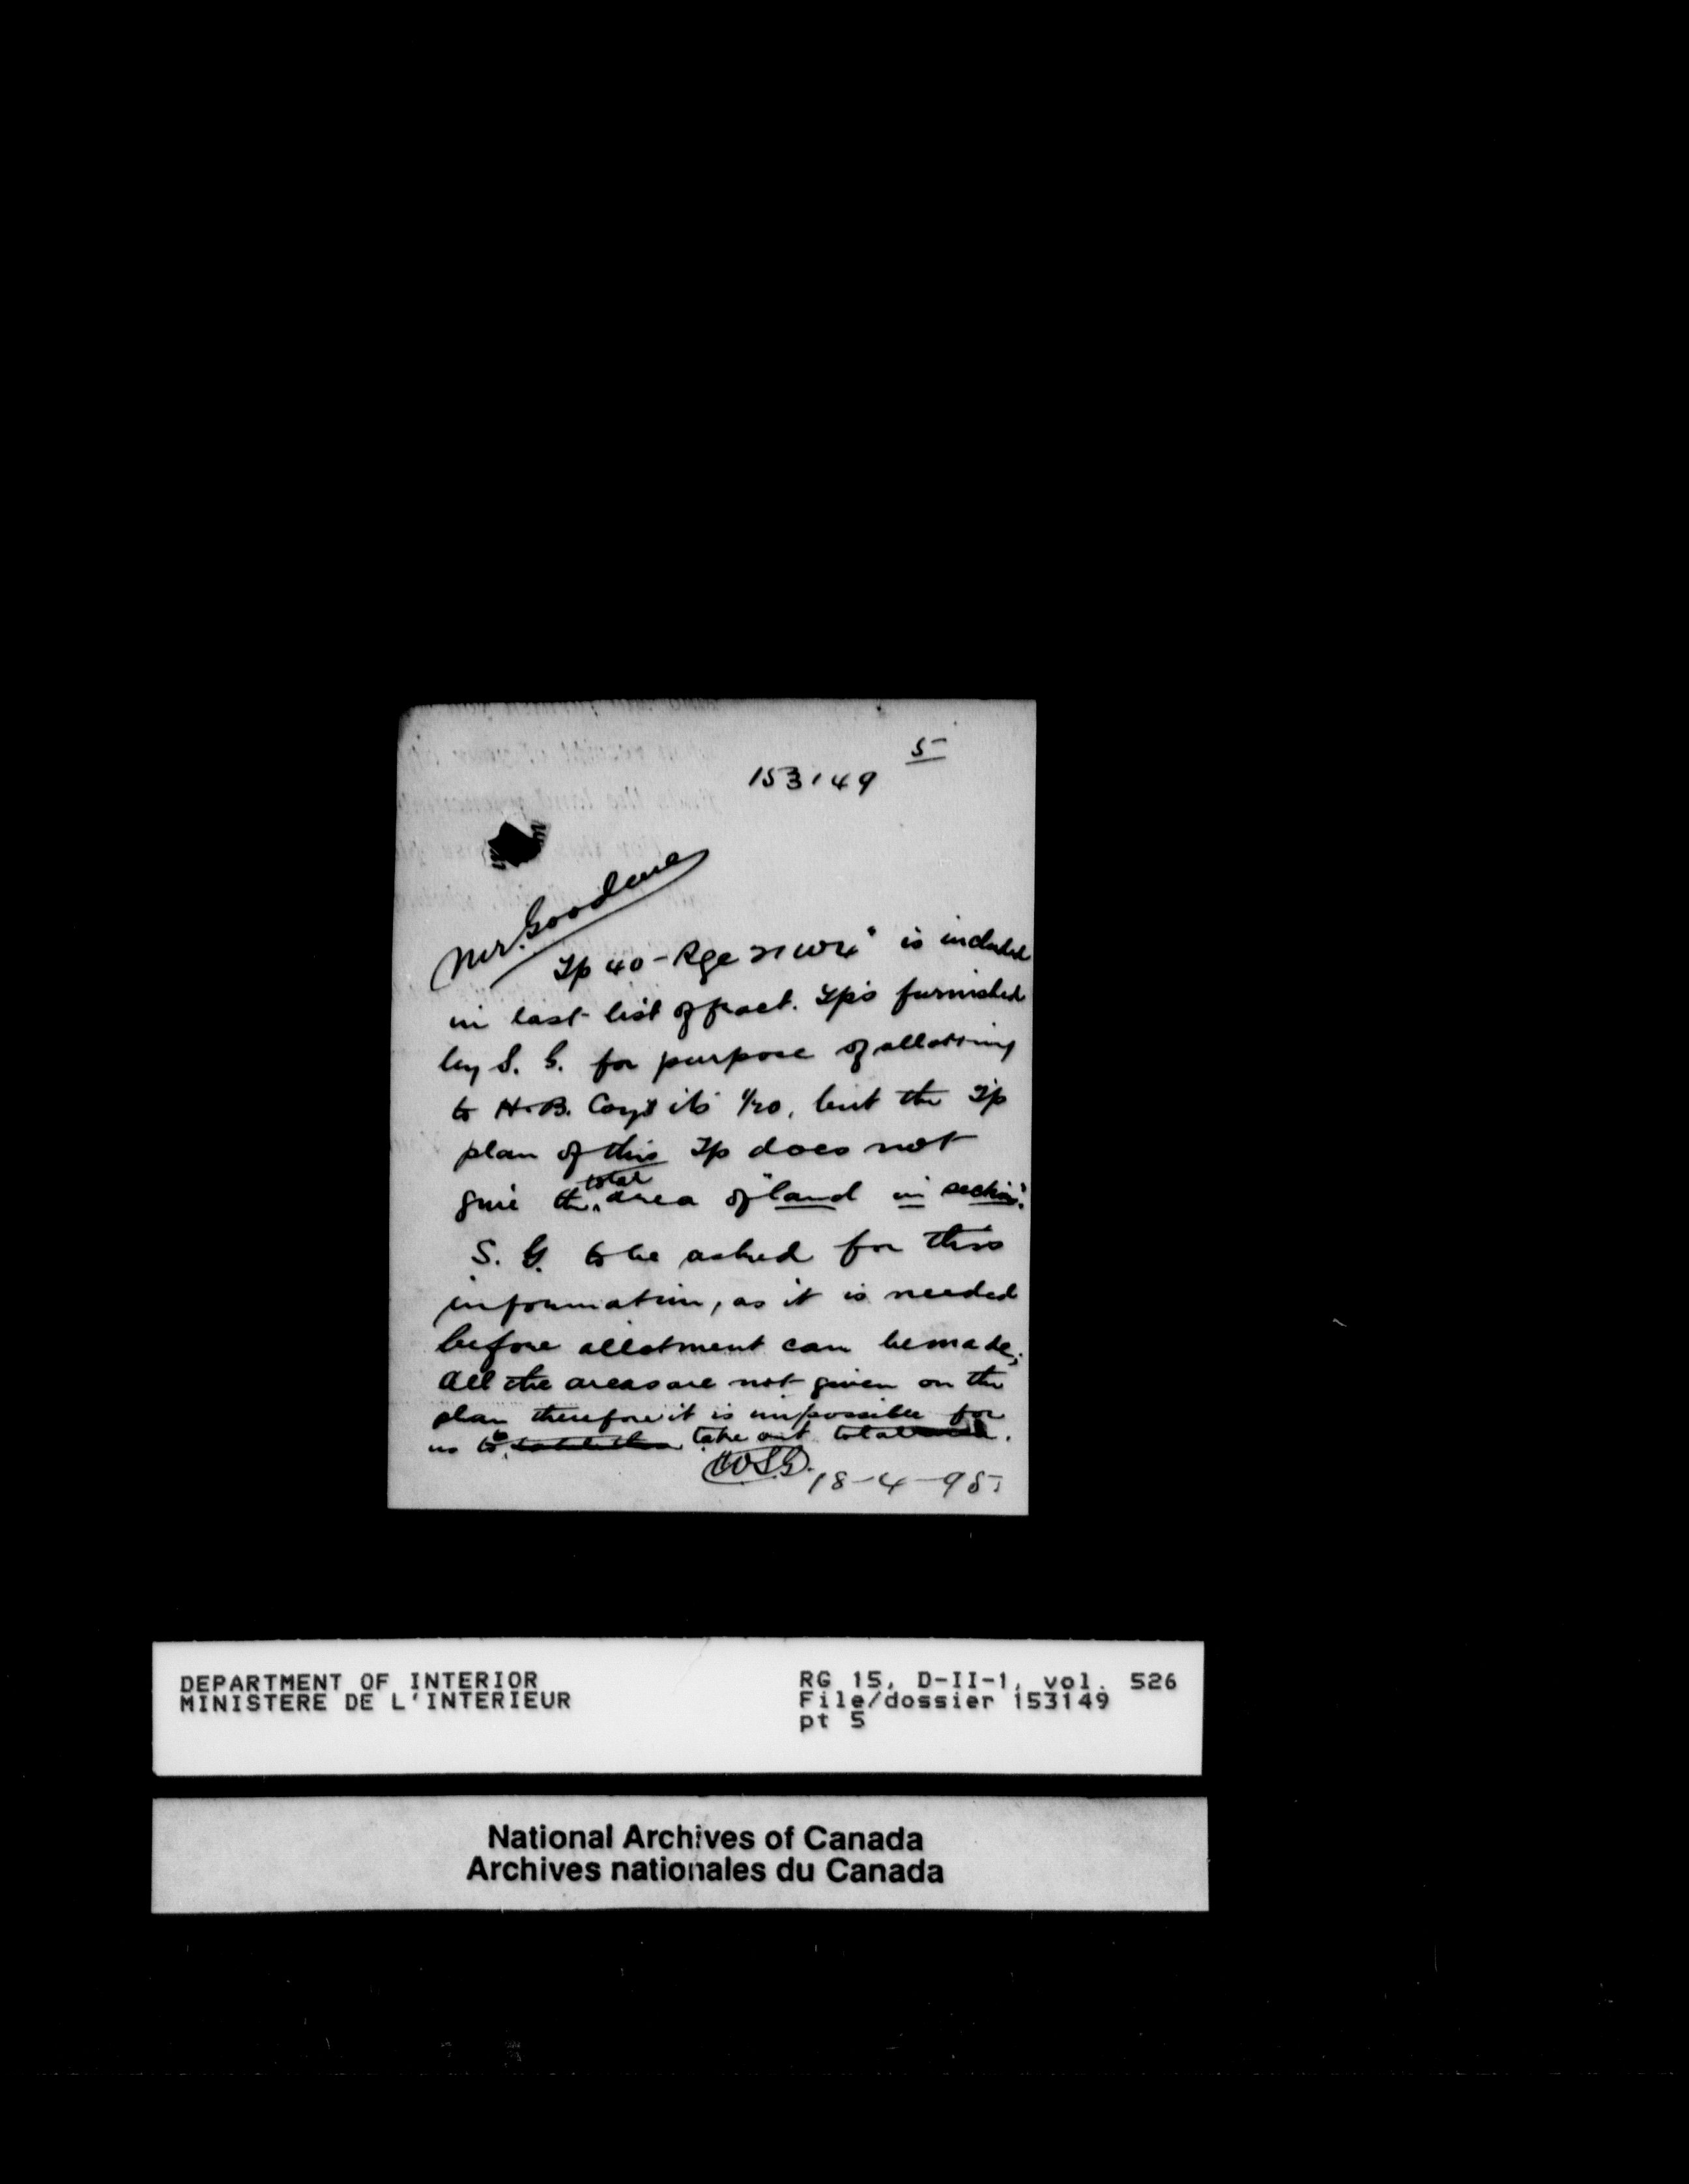 5
153149
Mr. Goodeve
Tp 40 - Rge 21 W4" is included
in last list of fract. Tps furnished
by S. G. for purpose of allotting
to H. B. Coy's its 1/20, but the Tp
plan of this Tp does not
give the total area of "land in section".
S. G. to be asked for this
information, as it is needed
before allotment can be made;
All the areas are not given on the
plan therefore it is impossible for
us to take out total.
18-4-95
DEPARTMENT OF INTERIOR
MINISTERE DE L'INTERIEUR
RG 15, D-II-1, vol. 526
File/dossier 153149
pt 5
National Archives of Canada
Archives nationales du Canada